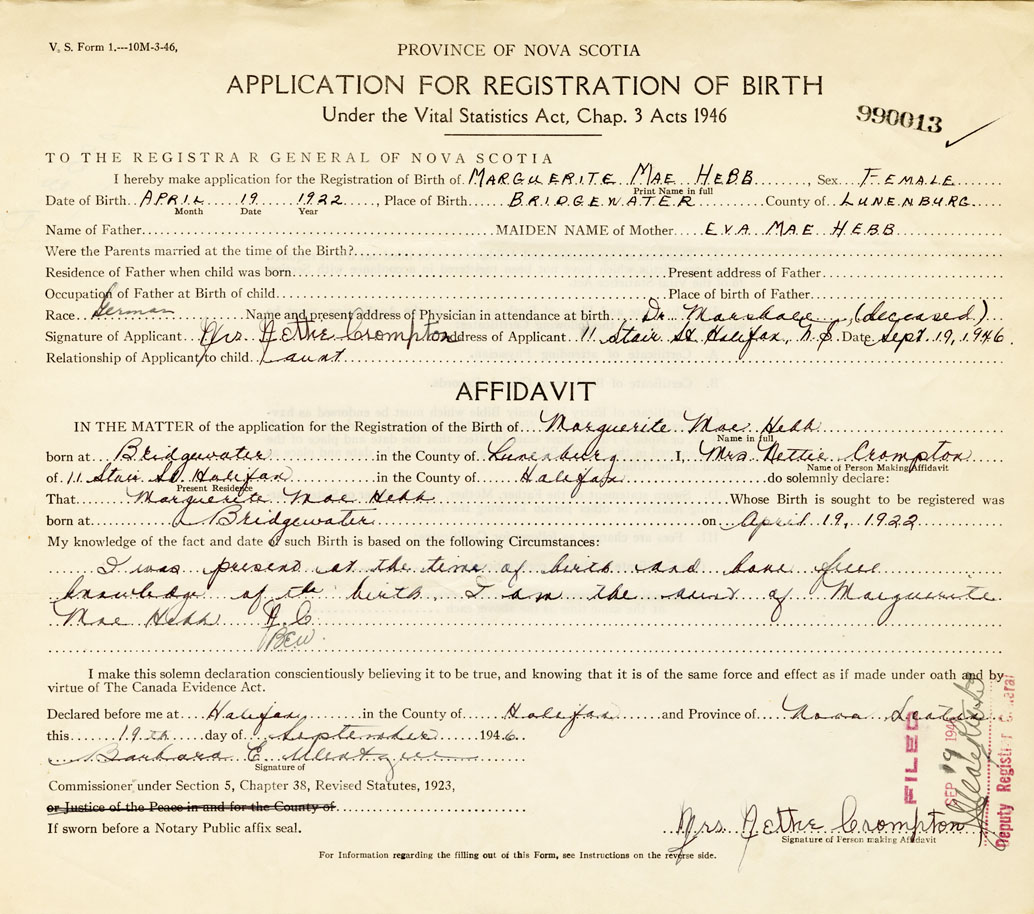 V. S. Form 1.---10M-3-46,
PROVINCE OF NOVA SCOTIA
APPLICATION FOR REGISTRATION OF BIRTH
Under the Vital Statistics Act, Chap. 3 Acts 1946
990013
TO THE REGISTRAR GENERAL OF NOVA SCOTIA
I hereby make application for the Registration of Birth of MARGUERITE MAE HEBB, Sex FEMALE
Print Name in full
Date of Birth APRIL 19 1922, Place of Birth BRIDGEWATER County of LUNENBURG
Month Date Year
Name of Father MAIDEN NAME of Mother EVA MAE HEBB
Were the Parents married at the time of the Birth?
Residence of Father when child was born Present address of Father
Occupation of Father at Birth of child Place of birth of Father
Race German Name and present address of Physician in attendance at birth Dr. Marshall, (deceased)
Signature of Applicant Mrs Nettie Crompton Address of Applicant 11 Stair St Halifax, N.S. Date Sept. 19, 1946
Relationship of Applicant to child aunt
AFFIDAVIT
IN THE MATTER of the application for the Registration of the Birth of Marguerite Mae Hebb
Name in full
born at Bridgewater in the County of Lunenburg I, Mrs Nettie Crompton
Name of Person Making Affidavit
of 11 Stair St Halifax in the County of Halifax do solemnly declare:
Present Residence
That Marguerite Mae Hebb Whose Birth is sought to be registered was
born at Bridgewater on April 19, 1922
My knowledge of the fact and date of such Birth is based on the following Circumstances:
I was present at the time of birth and have full
knowledge of the birth. I am the aunt of Marguerite
Mae Hebb N.C
BEW
I make this solemn declaration conscientiously believing it to be true, and knowing that it is of the same force and effect as if made under oath and by
virtue of The Canada Evidence Act.
Declared before me at Halifax in the County of Halifax and Province of Nova Scotia
this 19th day of September 1946
Barbara E.
Signature of
Commissioner under Section 5, Chapter 38, Revised Statutes, 1923,
or Justice of the Peace in and for the County of
If sworn before a Notary Public affix seal.
Mrs Nettie Crompton
Signature of Person making Affidavit
For Information regarding the filling out of this Form, see Instructions on the reverse side.
FILED
SEP 19
Deputy Registrar General